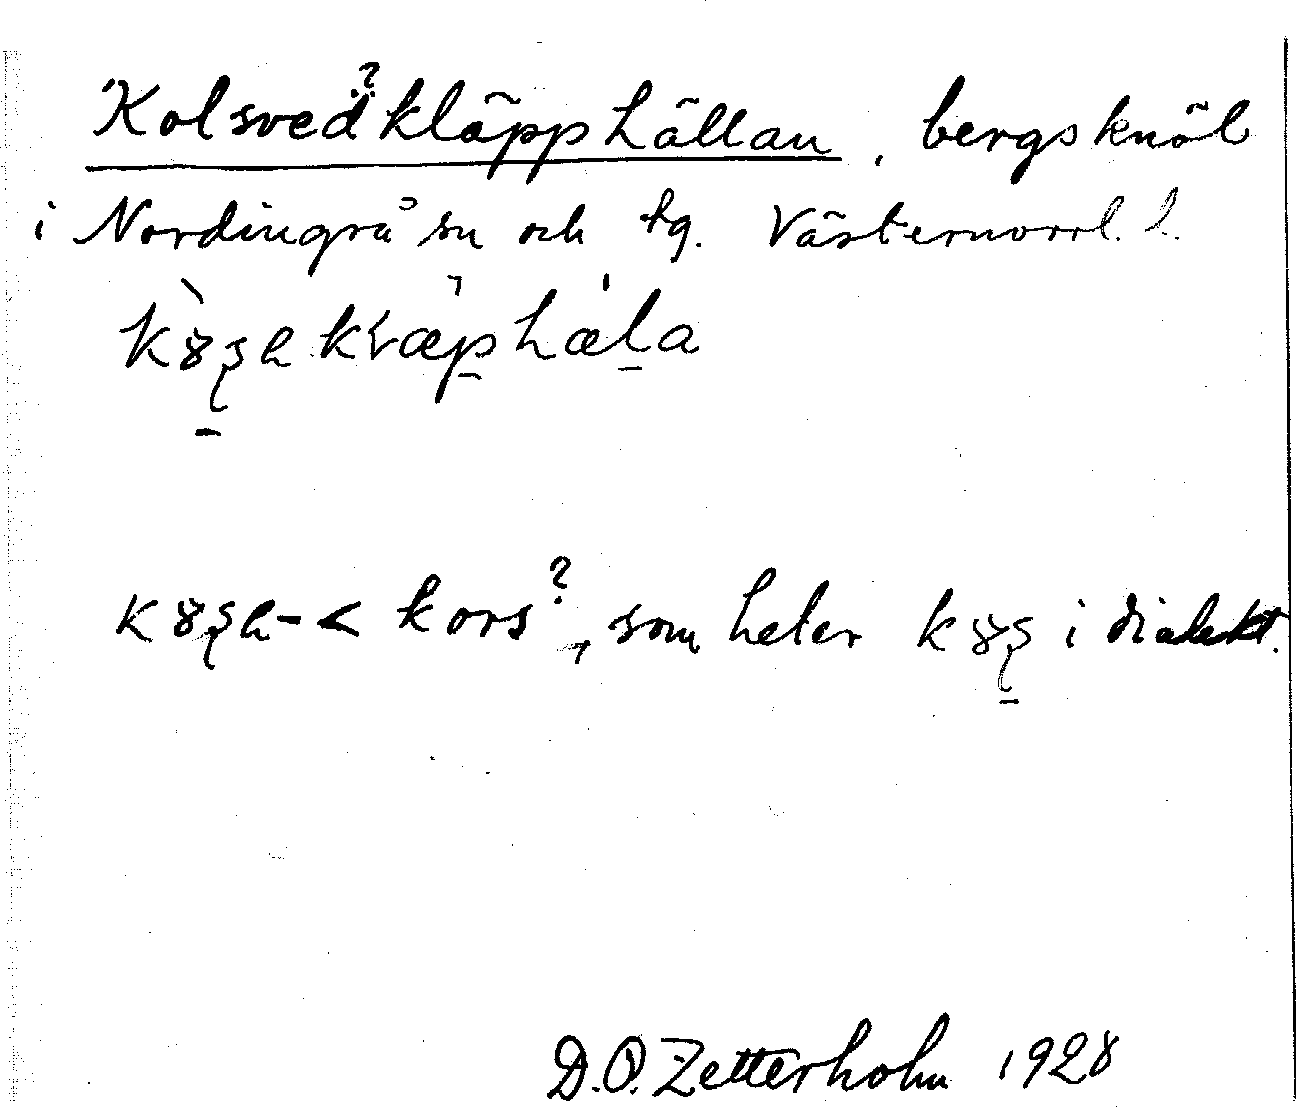 Kolsved?kläpphällan, bergsknöl
i Nordingrå sn och tg. Västernorrl. l.
kors?, som heter i dialekt.
D.O. Zetterholm 1928